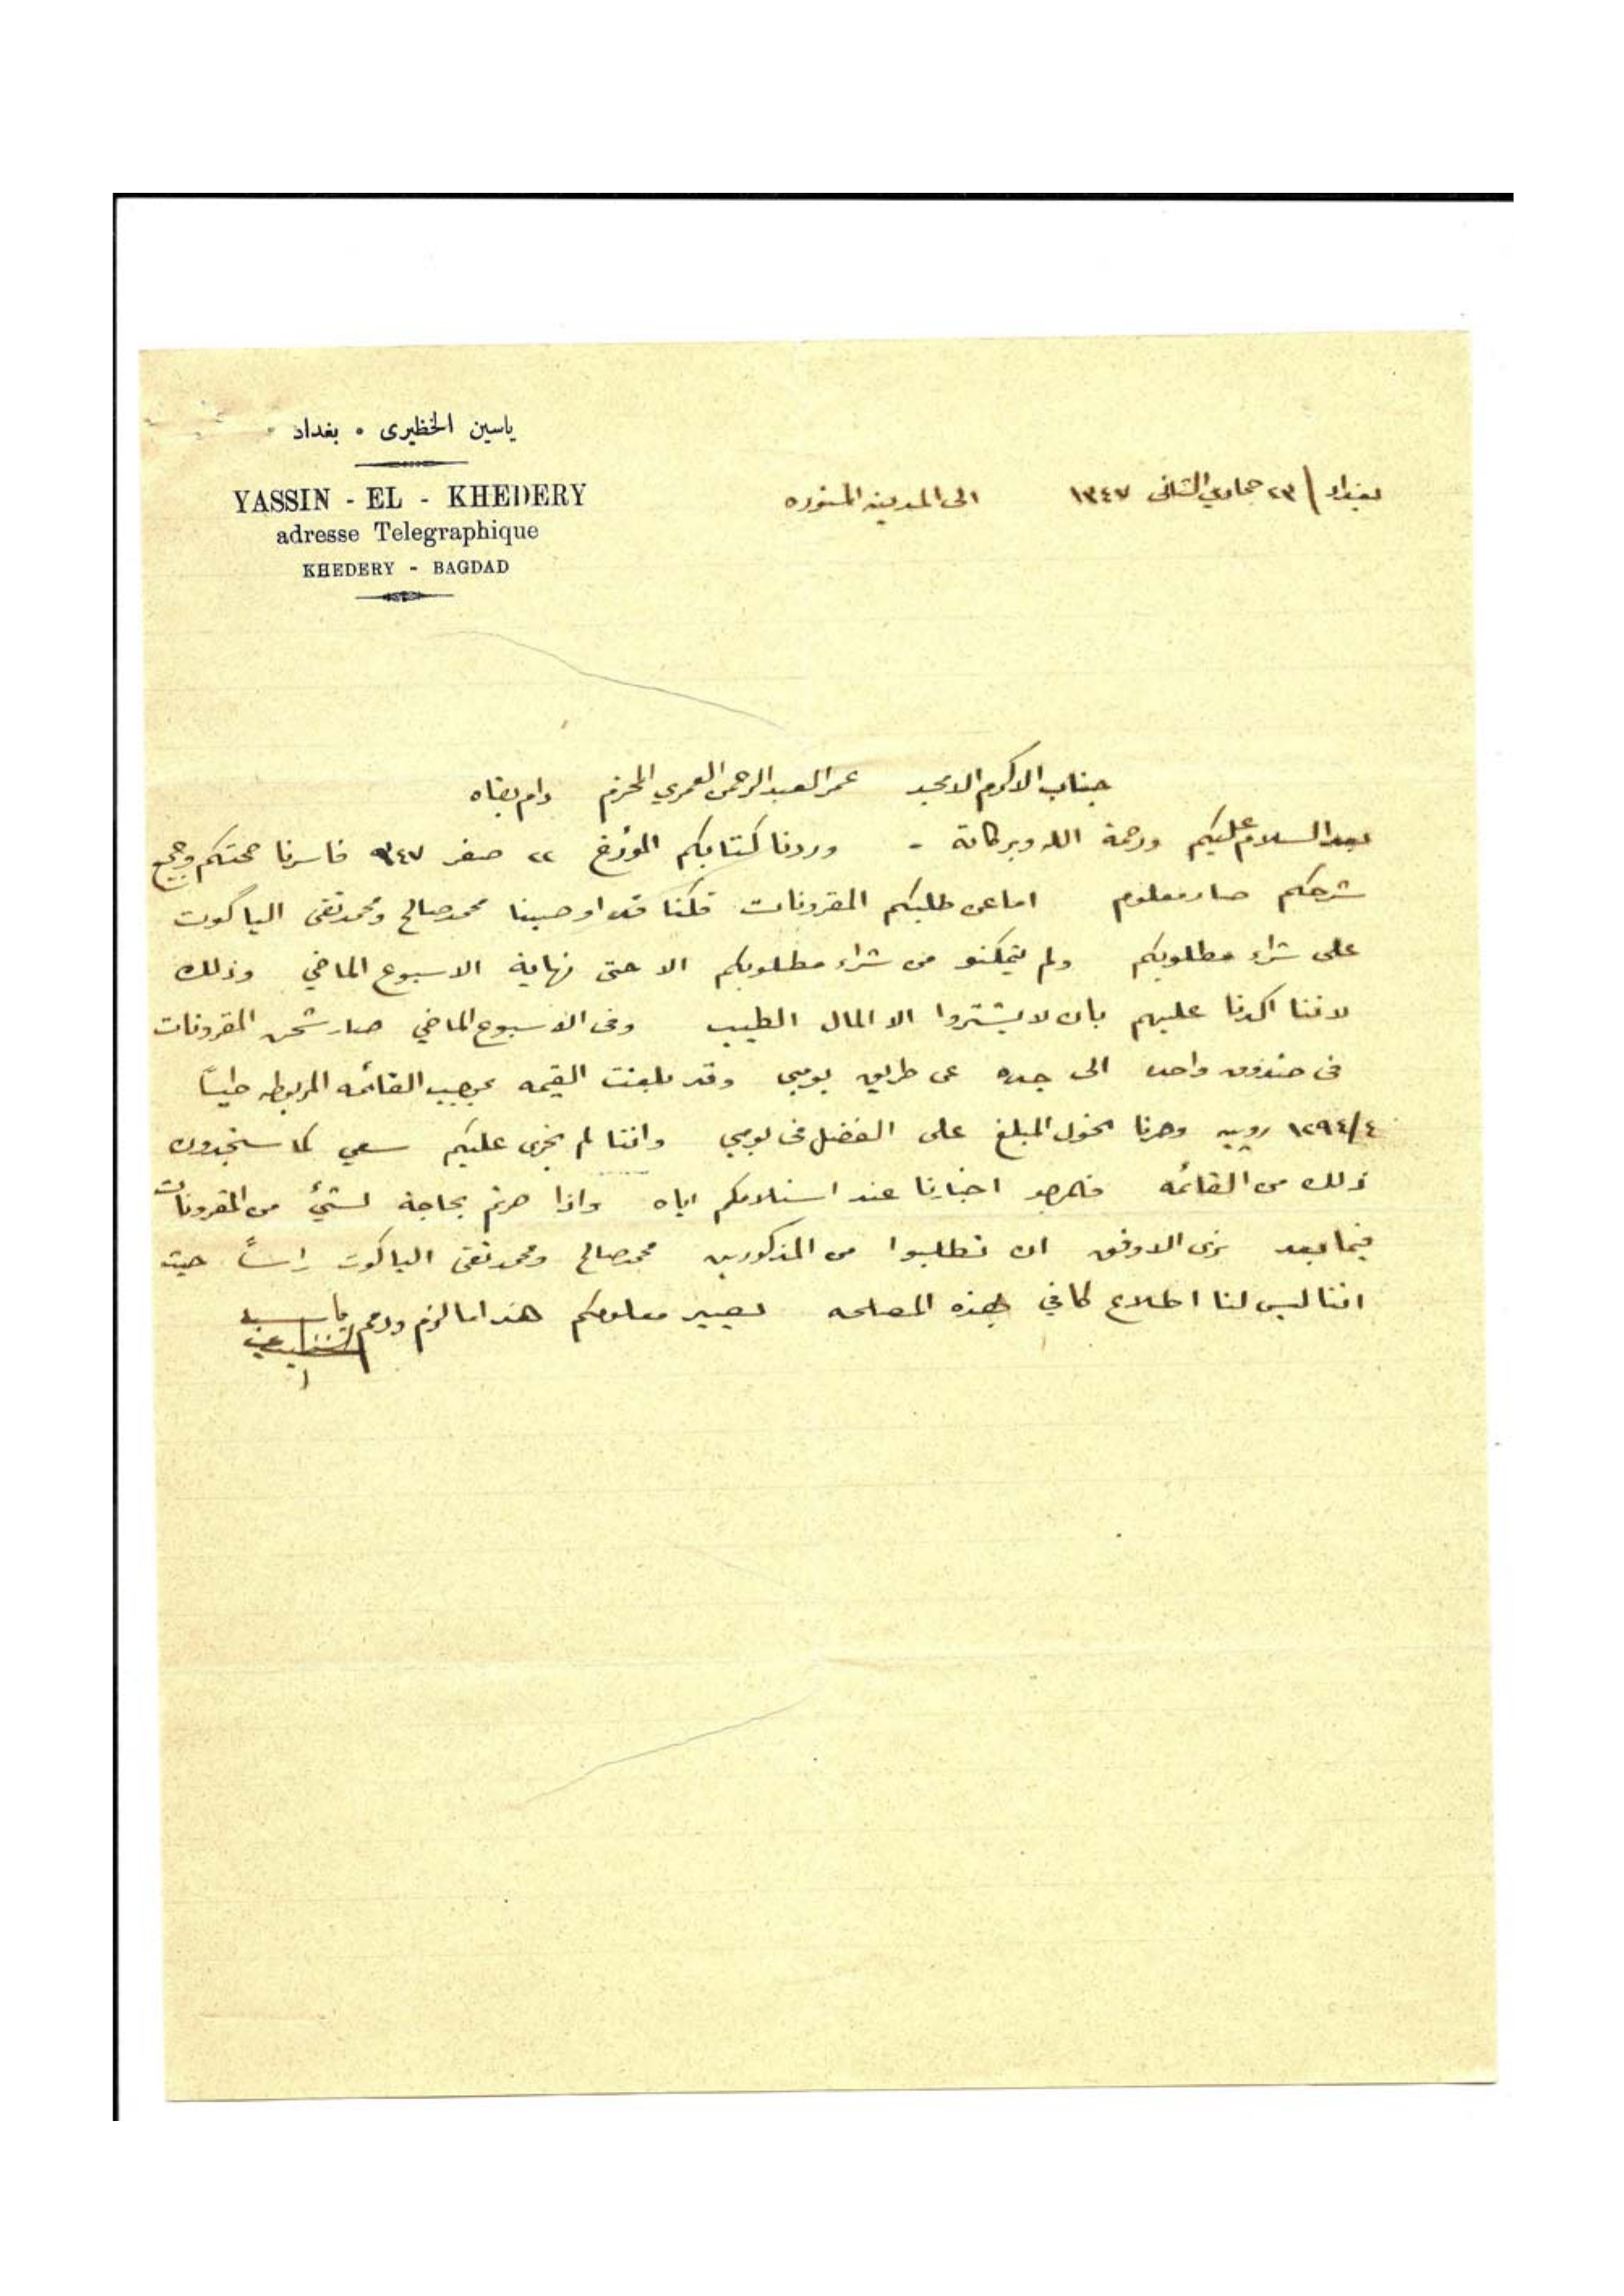 ياسين الخظيرى • بغداد
YASSIN - EL - KHEDERY
adresse Telegraphique
KHEDERY - BAGDAD
بغداد / ٢٣ جمادي الثاني ١٣٤٧ الى المدينه المنوره
جناب الاكرم الامجد عمر العبدالرحمن العمري المحترم دام بقاه
بعد السلام عليكم ورحمة الله وبركاته - وردنا كتابكم المؤرخ ٢٢ صفر ٣٤٧ فاسرنا صحتكم وجميع
شرحكم صار معلوم اما عن طلبكم المقرونات قلنا قد اوصينا محمد صالح ومحمد تقى الياكوت
على شراء مطلوبكم ولم يتمكنو من شراء مطلوبكم الا حتى نهاية الاسبوع الماضي وذلك
لاننا اكدنا عليهم بان لا يشتروا الا المال الطيب وفى الاسبوع الماضي صار شحن المقرونات
فى صندوق واحد الى جده عن طريق بومبى وقد بلغت القيمه بموجب القائمه المربوطه طياً
١٢٩٤/٤ روبيه وصرنا نحول المبلغ على الفضل فى بومبي واننا لم نجرى عليكم سعي كما ستجدون
ذلك من القائمه فالمرجو اخبارنا عند استلامكم اياه واذا صرتم بحاجة لشئ من المقرونات
فيما بعد نرى الاوفق ان تطلبوا من المذكورين محمد صالح ومحمد تقى الياكوت راساً حيث
اننا ليس لنا اطلاع كافي بهذه المصلحه ليصير معلومكم هذا ما لزم ودمتم ياسين